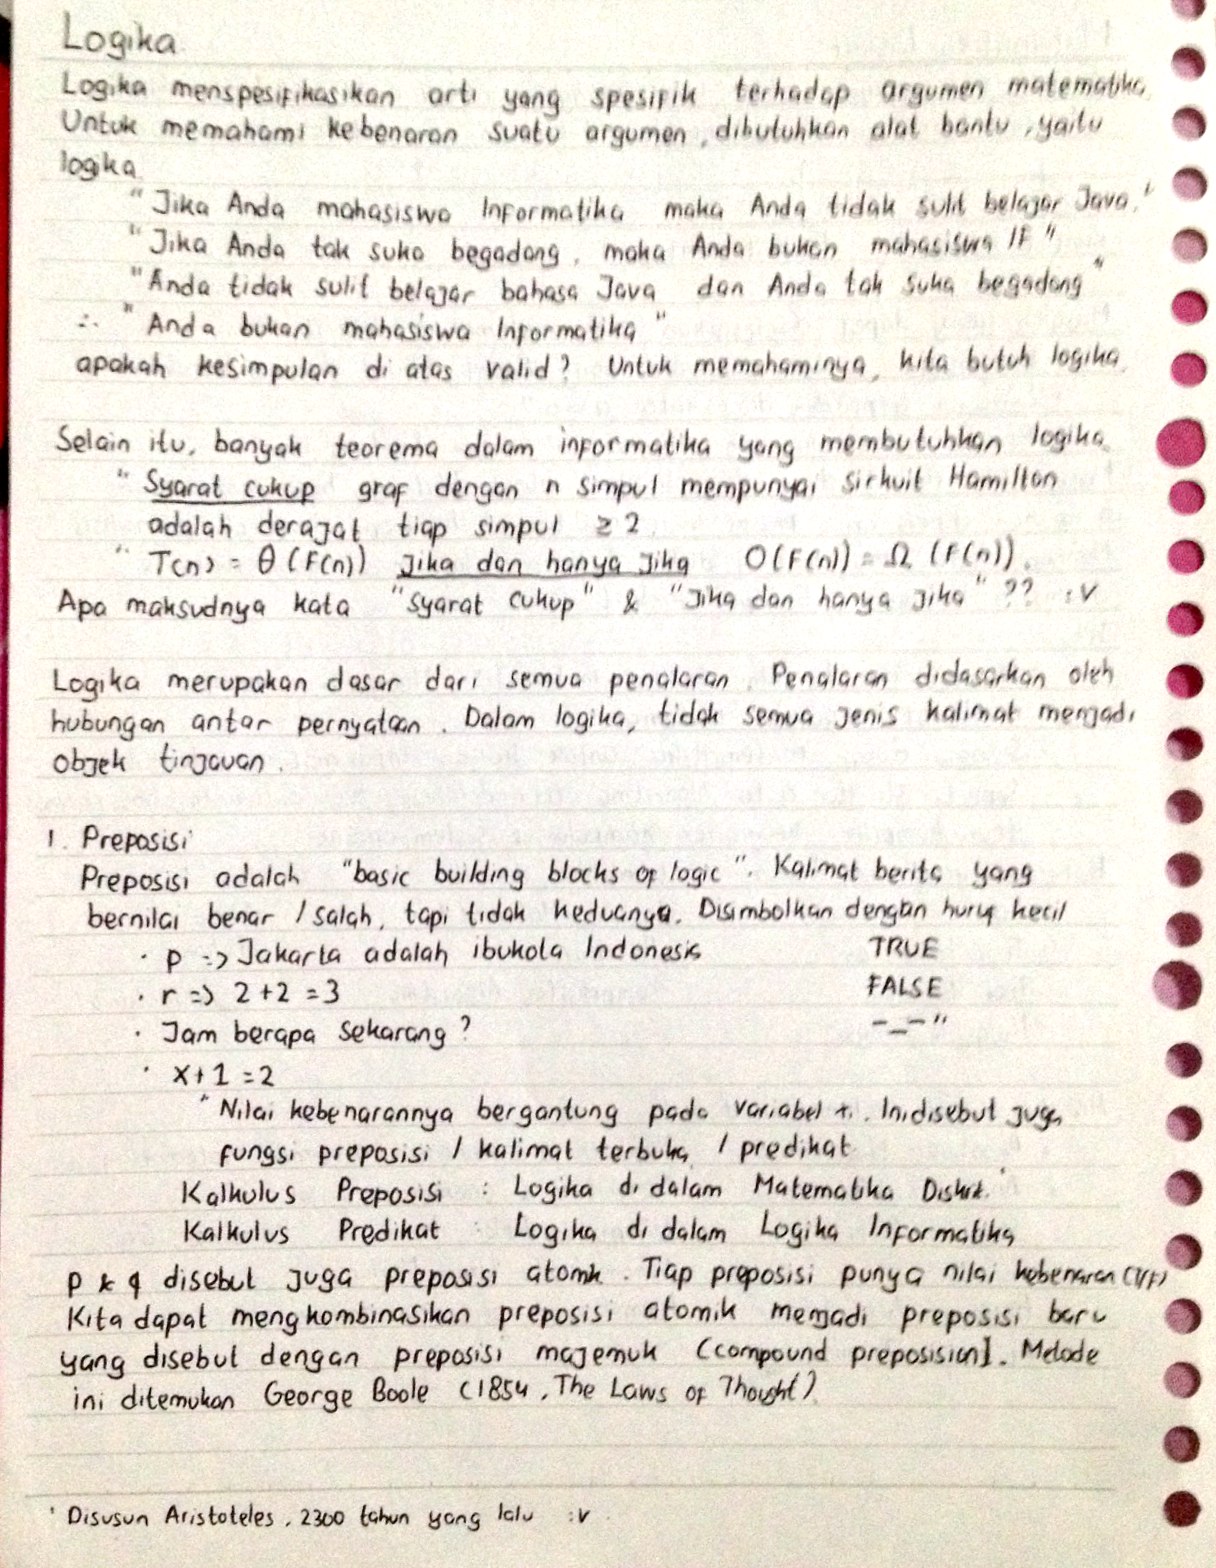 Logika
Logika menspesifikasikan arti yang spesifik terhadap argumen matematika
Untuk memahami kebenaran suatu argumen, dibutuhkan alat bantu, yaitu
logika
"Jika Anda mahasiswa Informatika maka Anda tidak sulit belajar Java."
"Jika Anda tak suka begadang, maka Anda bukan mahasiswa IF"
"Anda tidak sulit belajar bahasa Java dan Anda tak suka begadang"
∴ "Anda bukan mahasiswa Informatika"
apakah kesimpulan di atas valid? Untuk memahaminya, kita butuh logika.
Selain itu, banyak teorema dalam informatika yang membutuhkan logika
" Syarat cukup graf dengan n simpul mempunyai sirkuit Hamilton
adalah derajat tiap simpul ≥ 2
" T(n) = θ (F(n)) jika dan hanya jika O(F(n)) = Ω (F(n)).
Apa maksudnya kata "syarat cukup" & "Jika dan hanya jika" ?? :v
Logika merupakan dasar dari semua penalaran. Penalaran didasarkan oleh
hubungan antar pernyataan. Dalam logika, tidak semua jenis kalimat menjadi
objek tinjauan.
1. Preposisi
Preposisi adalah "basic building blocks of logic". Kalimat berita yang
bernilai benar / salah, tapi tidak keduanya. Disimbolkan dengan huruf kecil
· p => Jakarta adalah ibukota Indonesia TRUE
· r => 2 + 2 = 3 FALSE
· Jam berapa sekarang? -_-"
· x + 1 = 2
" Nilai kebenarannya bergantung pada variabel x. Ini disebut juga
fungsi preposisi / kalimat terbuka / predikat
Kalkulus Preposisi : Logika di dalam Matematika Diskrit.
Kalkulus Predikat : Logika di dalam Logika Informatika
p & q disebut juga preposisi atomik. Tiap preposisi punya nilai kebenaran (T/F)
Kita dapat mengkombinasikan preposisi atomik menjadi preposisi baru
yang disebut dengan preposisi majemuk (compound preposision). Metode
ini ditemukan George Boole (1854, The Laws of Thought)
' Disusun Aristoteles, 2300 tahun yang lalu :v